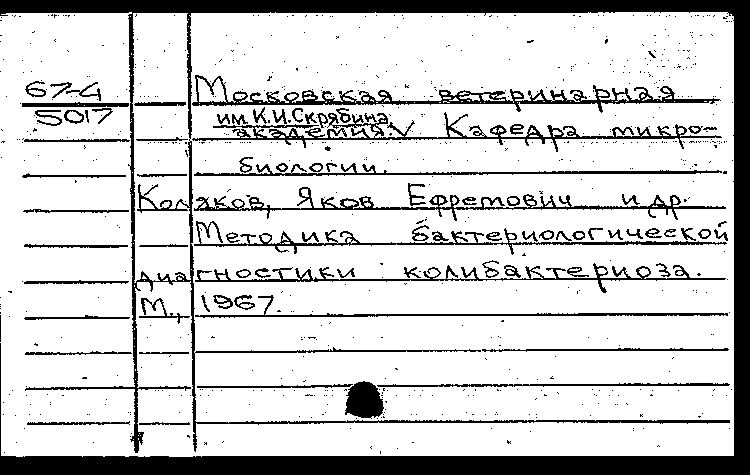 67-4
5017
Московская ветеринарная
им. К.И.Скрябина
академия. Кафедра микро-
биологии.
Коляков, Яков Ефремович и др.
Методика бактериологической
диагностики колибактериоза.
М., 1967.